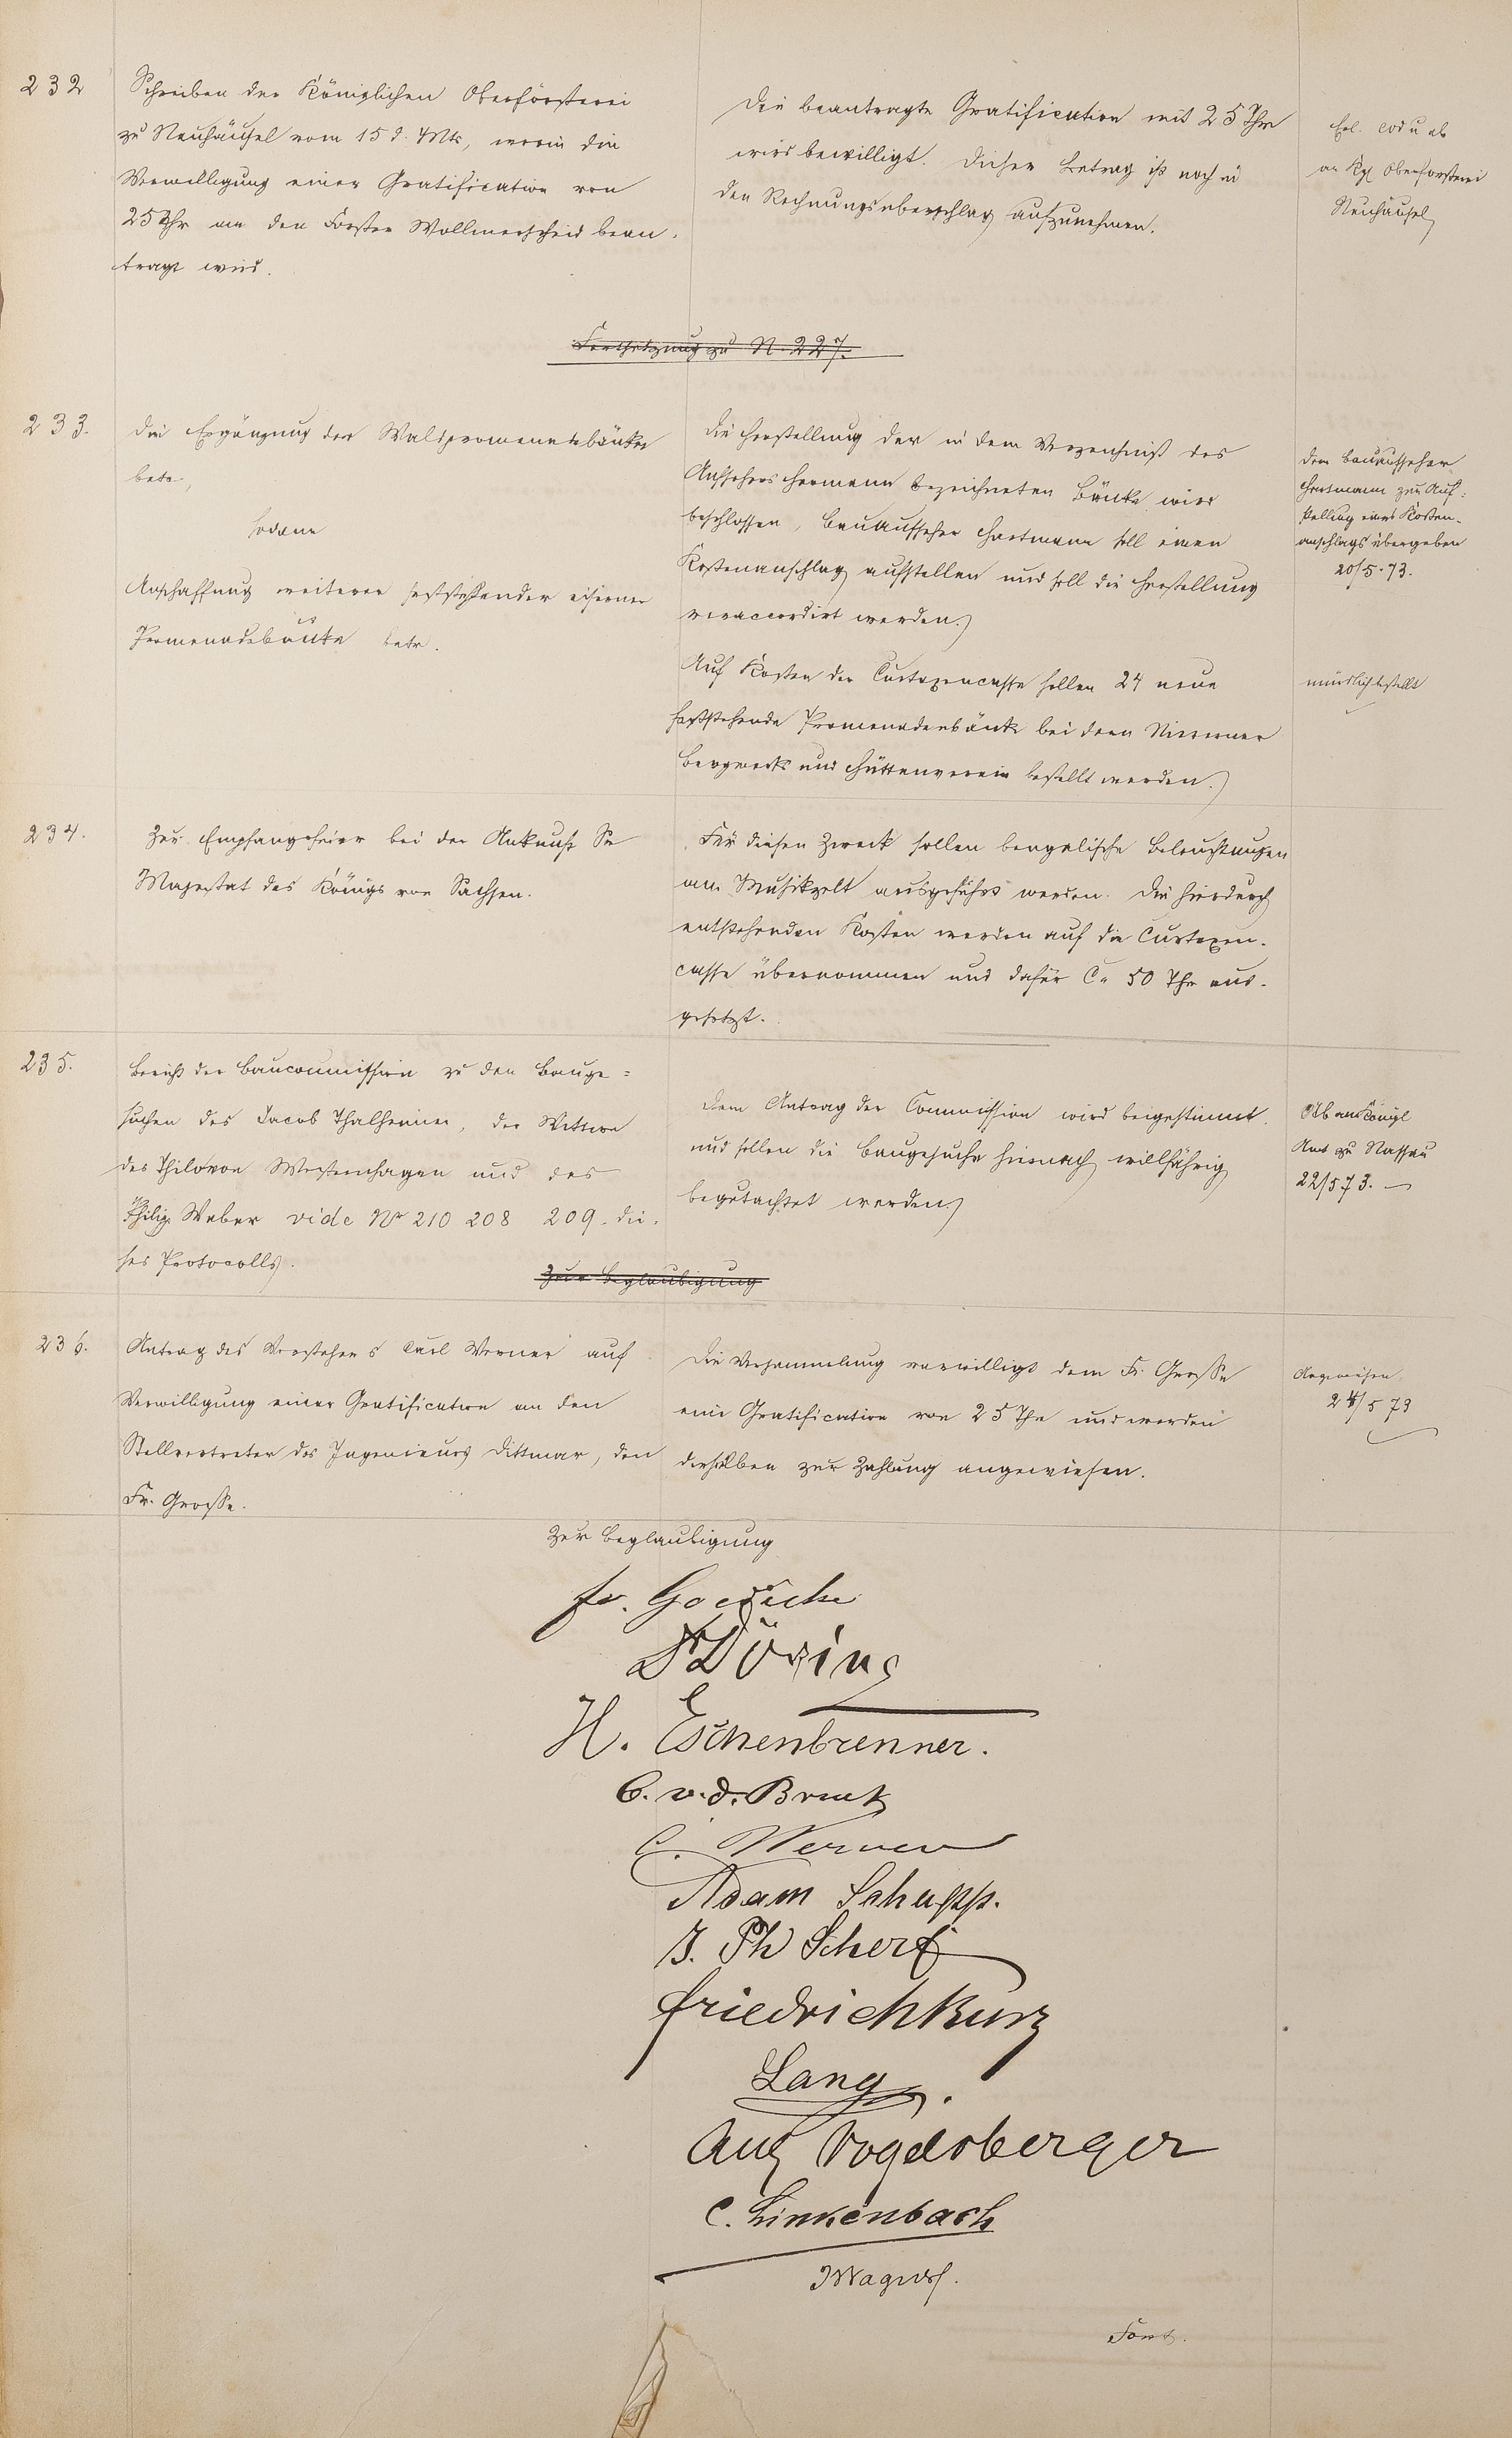 232
Schreiben der Königlichen Oberförsterei
zu Neuhäusel vom 15 d. Mts, worin die
Verwilligung einer Gratification von
25 Thr an den Förster Wollmerscheid bean-
tragt wird.
Die beantragte Gratification mit 25 Thr
wird bewilligt. Dieser Betrag ist noch in
den Rechnungsüberschlag aufzunehmen.
Erl. eod u ab
an Kgl Oberförsterei
Neuhäusel
Fortsetzung zu N. 227.
233.
Die Ergänzung der Waldpromenadebänke
betr.,
sodann
Anschaffung weiterer feststehender eiserner
Promenadebänke betr.
Die Herstellung der in dem Verzeichniß des
Aufsehers Hermann bezeichneten Bänke wird
beschlossen, Bauaufseher Hartmann soll einen
Kostenanschlag aufstellen und soll die Herstellung
veraccordirt werden.
Auf Kosten der Curtaxencasse sollen 24 neue
feststehende Promenadenbänke bei dem Nieverner
Bergwerks und Hüttenverein bestellt werden.
Dem Bauaufseher
Hartmann zur Auf-
stellung eines Kosten-
anschlags übergeben
20/5.73.
mündlich bestellt
234.
Zur Empfangsfeier bei der Ankunft Sr
Majestät des Königs von Sachsen.
Für diesen Zweck sollen bengalische Beleuchtungen
am Musikzelt ausgeführt werden. Die hierdurch
entstehenden Kosten werden auf die Curtaxen-
casse übernommen und dafür Ca 50 Thr aus-
gesetzt.
235.
Bericht der Baucommission zu den Bauge-
suchen des Jacob Thalheimer, der Wittwe
des Thilo von Westernhagen und des
Philip Weber vide No 210 208 209. die-
ses Protocolls.
Dem Antrag der Commission wird beigestimmt
und sollen die Baugesuche hiernach willfährig
begutachtet werden.
Ab an Königl
Amt zu Nassau
22/5 73. —
Zur Beglaubigung
236.
Antrag des Vorstehers Carl Werner auf
Verwilligung einer Gratification an den
Stellvertreter des Ingenieurs Dittmar, den
Fr. Grosse.
Die Versammlung verwilligt dem Fr. Grosse
eine Gratification von 25 Thr und werden
dieselben zur Zahlung angewiesen.
Angewiesen
24/5 73
Zur Beglaubigung
Fr. Goedecke
Dr Döring
H. Eschenbrenner.
C. v. d. Bruck
C. Werner
Adam Schupp.
J. Ph Scherf
Friedrich Kurz
Lang.
Aug Vogelsberger
C. Linkenbach
Font.